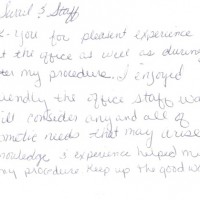 & Staff
- You for pleasant experience
t the office as well as during
ter my procedure. I enjoyed
iendly the office staff wa
ill consider any and all of
smetic needs that may arise
knowledge & experience helped m
my procedure. Keep up the good w